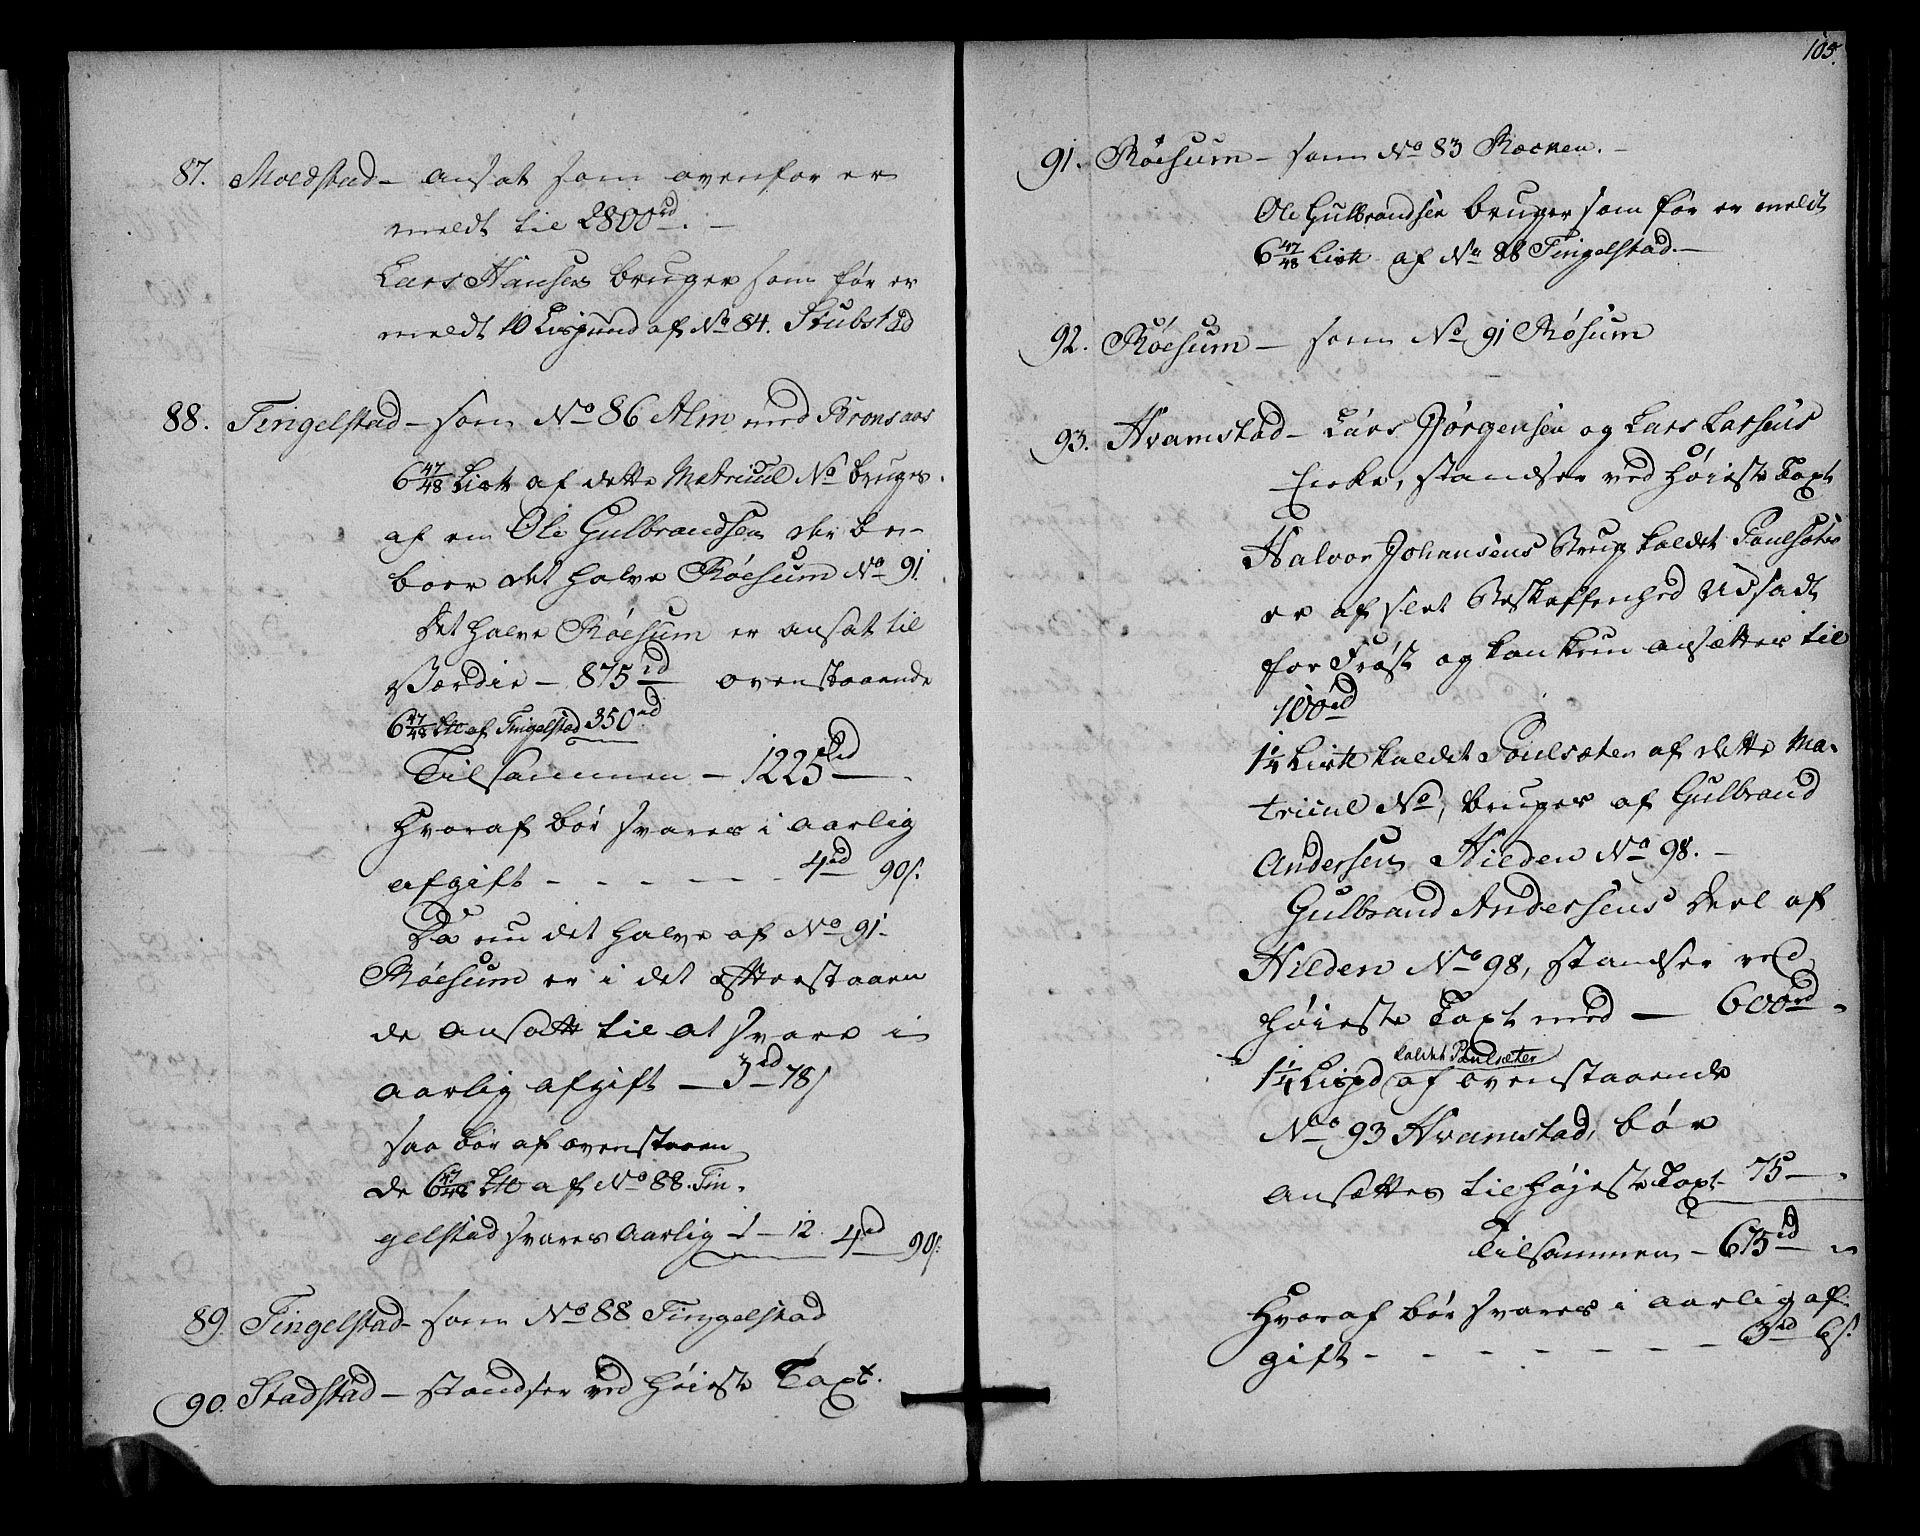 87. Moldstad – ansat som ovenfor er
meldt til 2800rd. –
Lars Hansen bruger som før er
meldt 10 Lispund af No 84. Stubstad
88. Tingelstad – som No 86 Alm med Bronsaas
6 47/48 Lis℔ af dette Matricul No bruges
af en Ole Gulbrandsen der be-
boer det halve Røesum No 91.
Det halve Røesum er ansat til
Værdie – 875 rd ovenstaaende
6 47/48 L℔ af Tingelstad 350 rd
Tilsammen – 1225 rd –
Hvoraf bør svares i aarlig
afgift – – – – – – 4 rd 90 s.
Da nu det halve af No 91
Røesum er i det efterstaaen
de ansatt til at svare i
aarlig afgift – 3 rd 78 s
saa bør af ovenstaaen
de 6 47/48 L℔ af No 88. Tin
gelstad svares Aarlig 1 – 12. 4 rd 90 s.
89. Tingelstad – som No 88 Tingelstad
90. Stadstad – standser ved høieste Taxt.
105.
91. Røesum – som No 83 Roenen. –
Ole Gulbrandsen bruger som før er meldt
6 47/48 Lis℔ af No 88 Tingelstad. –
92. Røesum – som No 91 Røsum
93. Hvamstad – Lars Jørgensen og Lars Larsens
Enke, standser ved høieste Taxt
Halvor Johansens Brug kaldet Paulsæter
er af slet Beskaffenhed Udsadt
for Frost og kan kun ansættes til
100 rd
1 1/4 Lis℔ kaldet Poulsæter af dette Ma-
tricul No, bruges af Gulbrand
Andersen Hilden No 98. –
Gulbrand Andersens Deel af
Hilden No 98, standser ved
høieste Taxt med – 600 rd „
kaldet Paulsæter
1 1/4 Lispd af ovenstaaende
No 93 Hvamstad, bør
ansættes til højeste Taxt 75 – „
Tilsammen – 675 rd „
Hvoraf bør svares i aarlig af-
gift – – – – – – – 3 rd 6 s.